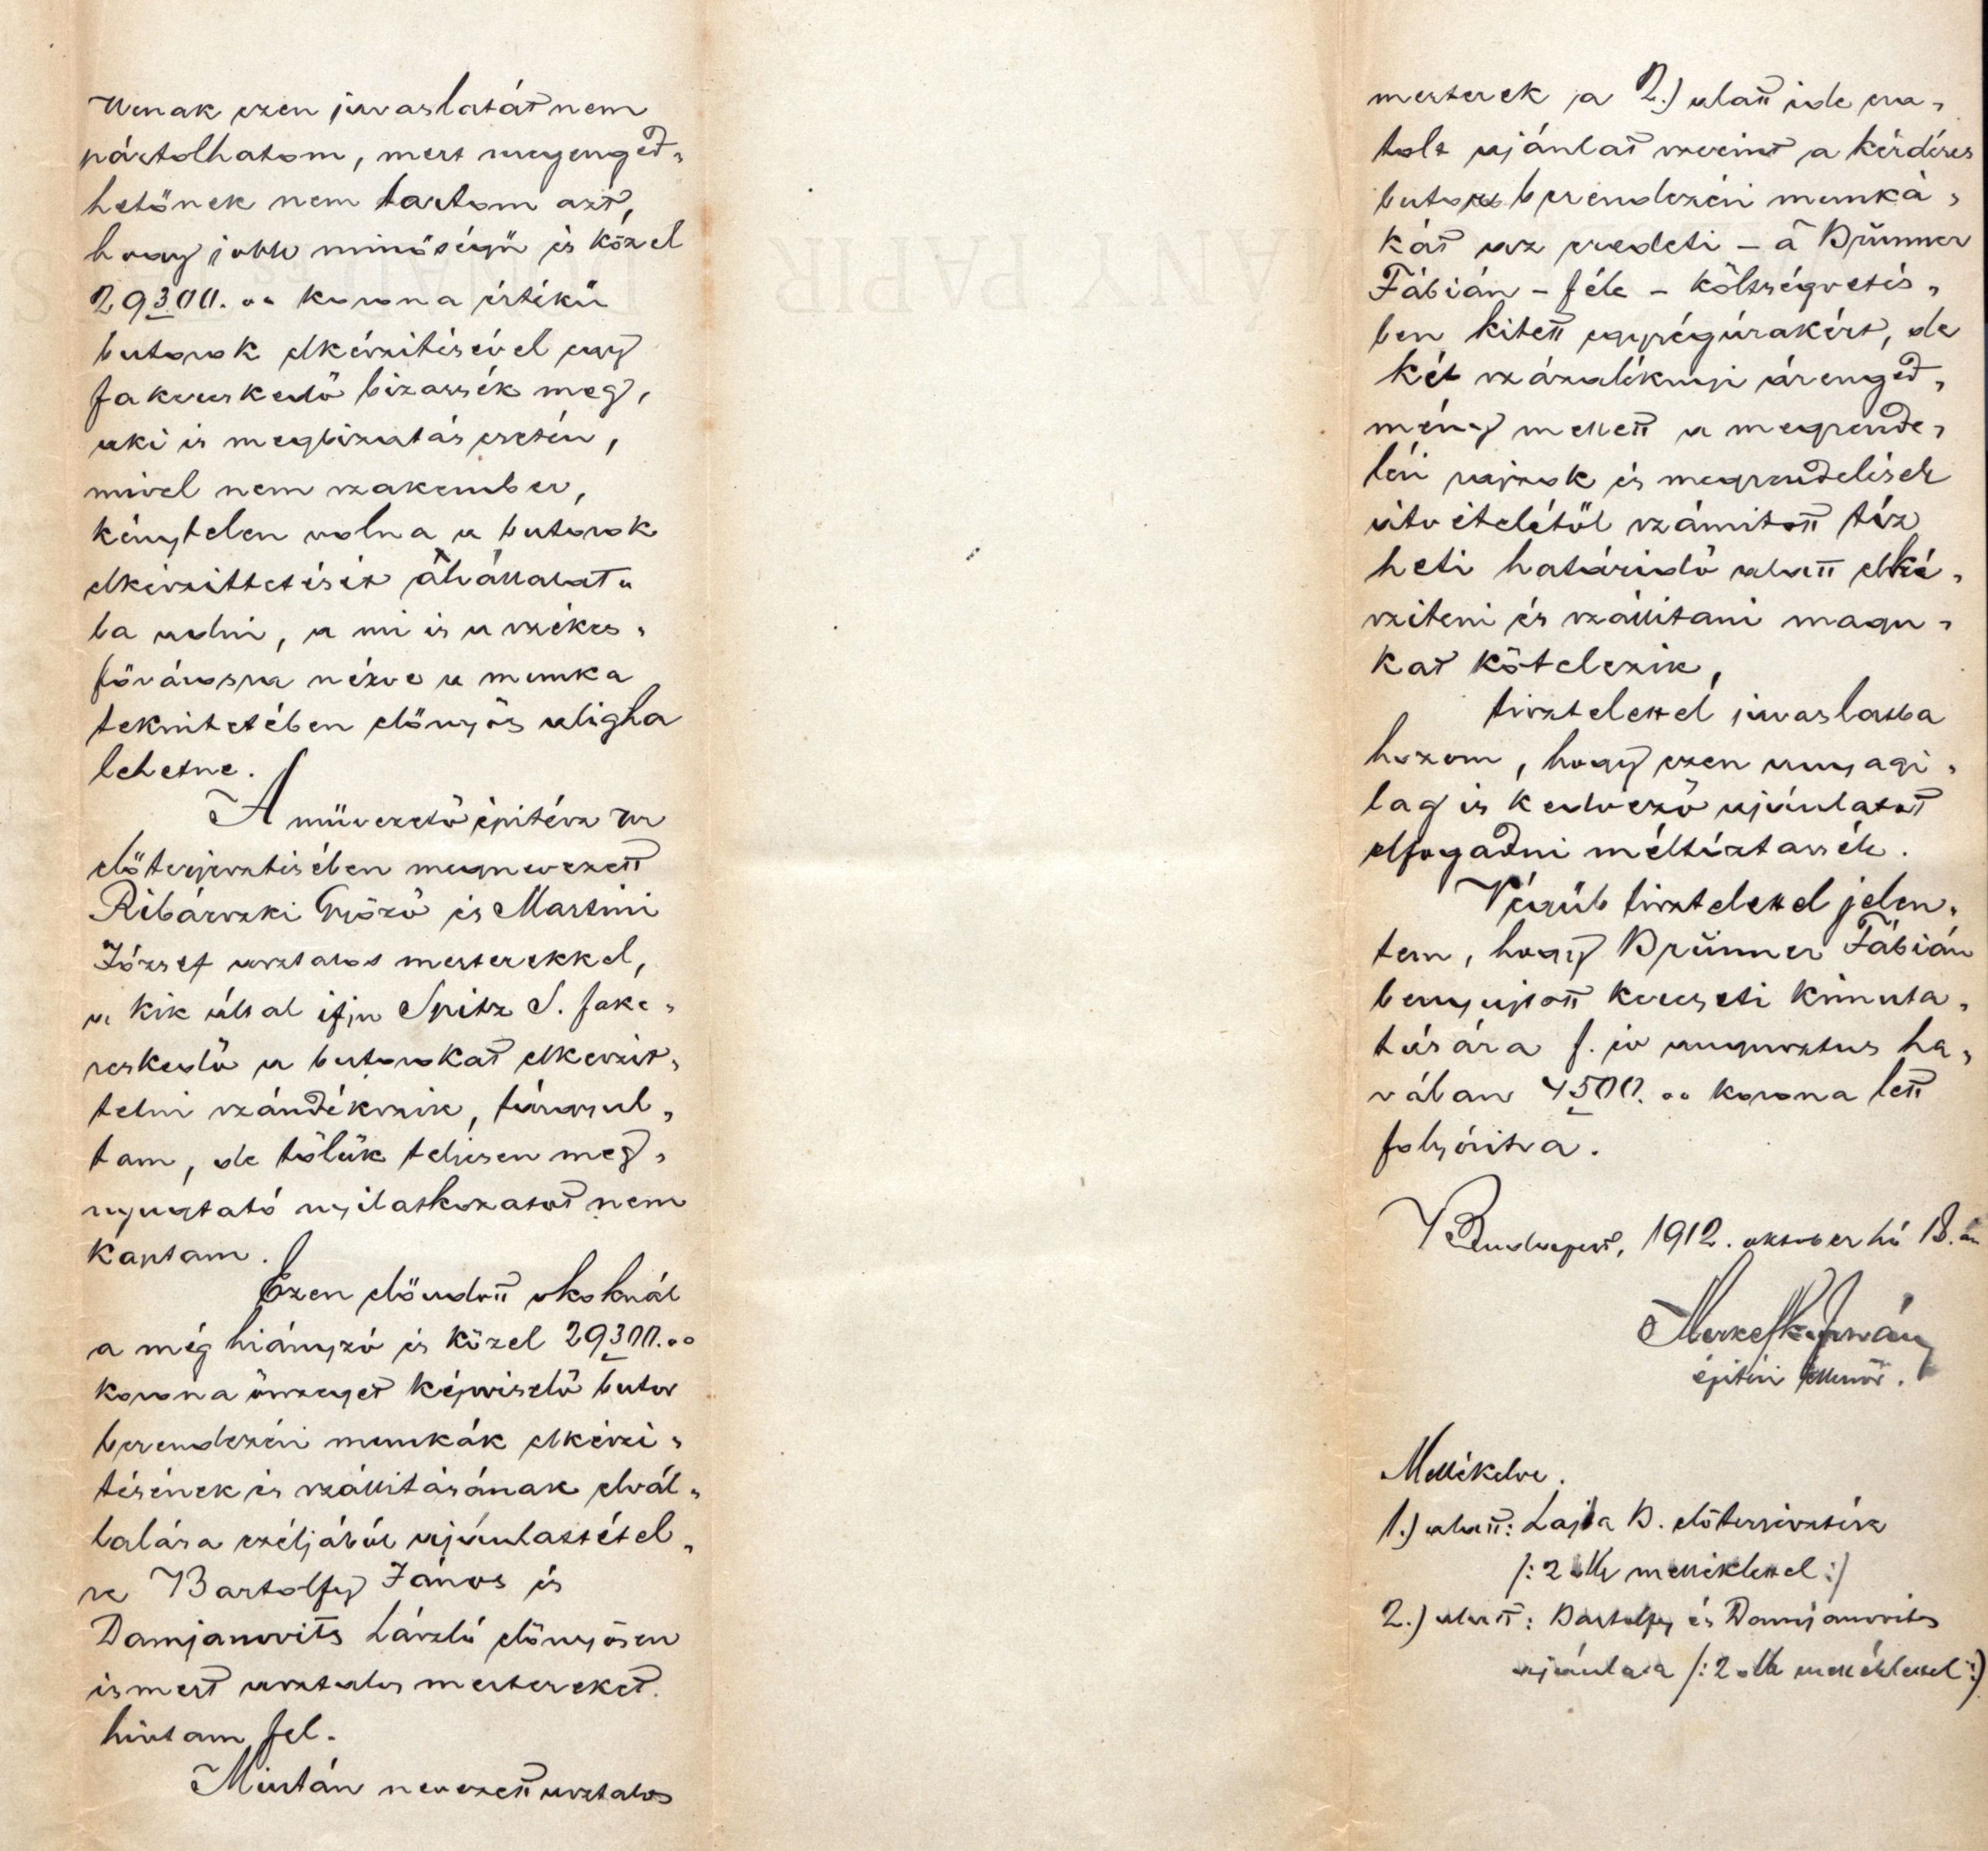 Urnak ezen javaslatát nem
pártolhatom, mert megenged-
hetőnek nem tartom azt,
hogy jobb minőségü és közel
29300.00 korona értékü
butorok elkészitésével egy
fakereskedő bizassék meg,
aki is megbizatás esetén,
mivel nem szakember,
kénytelen volna a butorok
elkészittetését átvállalatu
ba adni, a mi is a székes-
fővárosra nézve a munka
tekintetében előnyös aligha
lehetne.
A müvezető épitész ur
előterjesztésében megnevezett
Ribárszki Győző és Martini
József asztalos mesterekkel,
a kik által ifju Spitz S. fake-
reskedő a butorokat elkészit-
tetni szándékszik, tárgyal-
tam, de tőlük teljesen meg-
nyugtató nyilatkozatot nem
kaptam.
Ezen előadott okoknál
a még hiányzó és közel 29300.00
korona összeget képviselő butor
berendezési munkák elkészi-
tésének és szállitásának elvál-
lalása czéljából ajánlattétel-
re Bartolfy János és
Damjanovits László előnyösen
ismert asztalos mestereket
hivtam fel.
Miután nevezett asztalos
mesterek a 2.) alatt ide csa-
tolt ajánlat szerint a kérdéses
butor berendezési munká-
kat az eredeti - a Brünner
Fábián - féle - költségvetés-
ben kitett egységárakért, de
két százaléknyi árenged-
mény mellett a megrende-
lési rajzok és megrendelések
átvételétől számitott tiz
heti határidő alatt elké-
sziteni és szállitani magu-
kat kötelezik,
tisztelettel javaslatba
hozom, hogy ezen anyagi-
lag is kedvező ajánlatot
elfogadni méltóztassék.
Végül tisztelettel jelen-
tem, hogy Brünner Fábián
benyujtott kereseti kimuta-
tására f. év augusztus ha-
vában 4500.00 korona lett
folyósitva.
Budapest, 1912. oktober hó 18.án
épitési ellenőr.
Mellékelve.
1.) alatt: Lajta B. előterjesztése
/: 2 db melléklettel :/
2.) alatt: Bartolfy és Damjanovits
ajánlata /: 2 db melléklettel :/